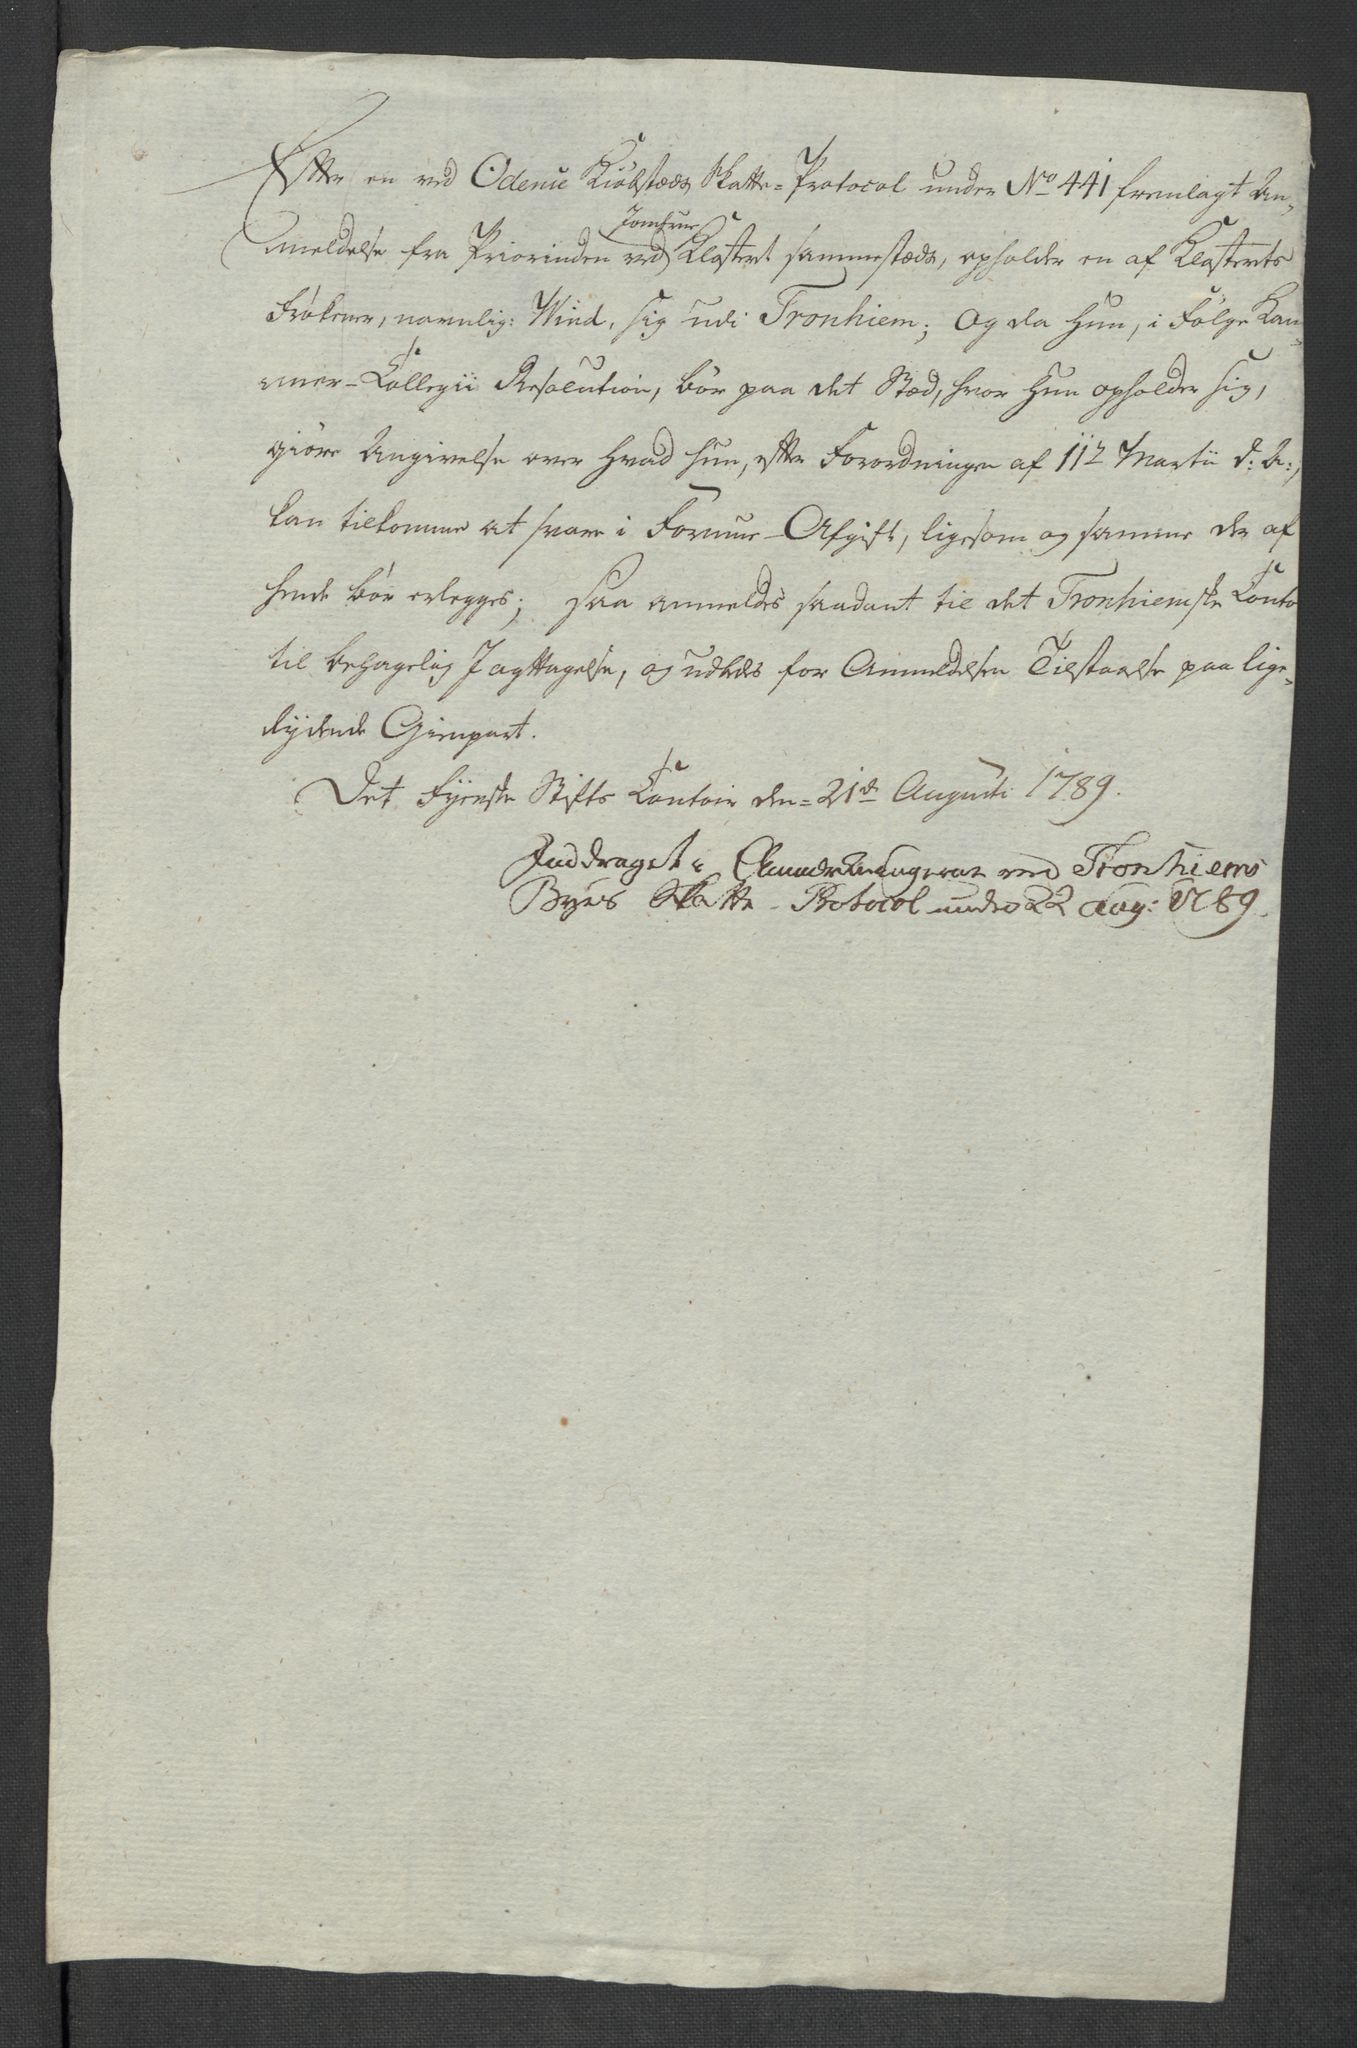 Efter en ved Odense Kiöbstæds Skatte-Protocol under No 441 fremlagt An-
meldelse fra Priorinden ved Jomfrue Klostert sammestæds, opholder en af Klosterets
Frökener, navnlig: Wind, sig udi Tronhiem; Og da Hun, i Fölge Kam-
mer-Collegii Resolution, bör paa det Stæd, hvor Hun opholder sig,
giöre Angivelse over hvad hun, efter Forordningen af 11te Martii d: A:,
kan tilkomme at svare i Formue-Afgift, ligesom og samme der af
hende bör erlegges; saa anmeldes saadant til det Tronhiemske Contoir
til behagelig Jagttagelse, og udbedes for Anmeldelsen Tilstaaelse paa lige-
lydende Gienpart.
Det Fyenske Stifts Contoir den 21de Augusti 1789.
Inddraget ved Tronhiems
Byes Skatte-Protocol under 22 Aug: 1789.